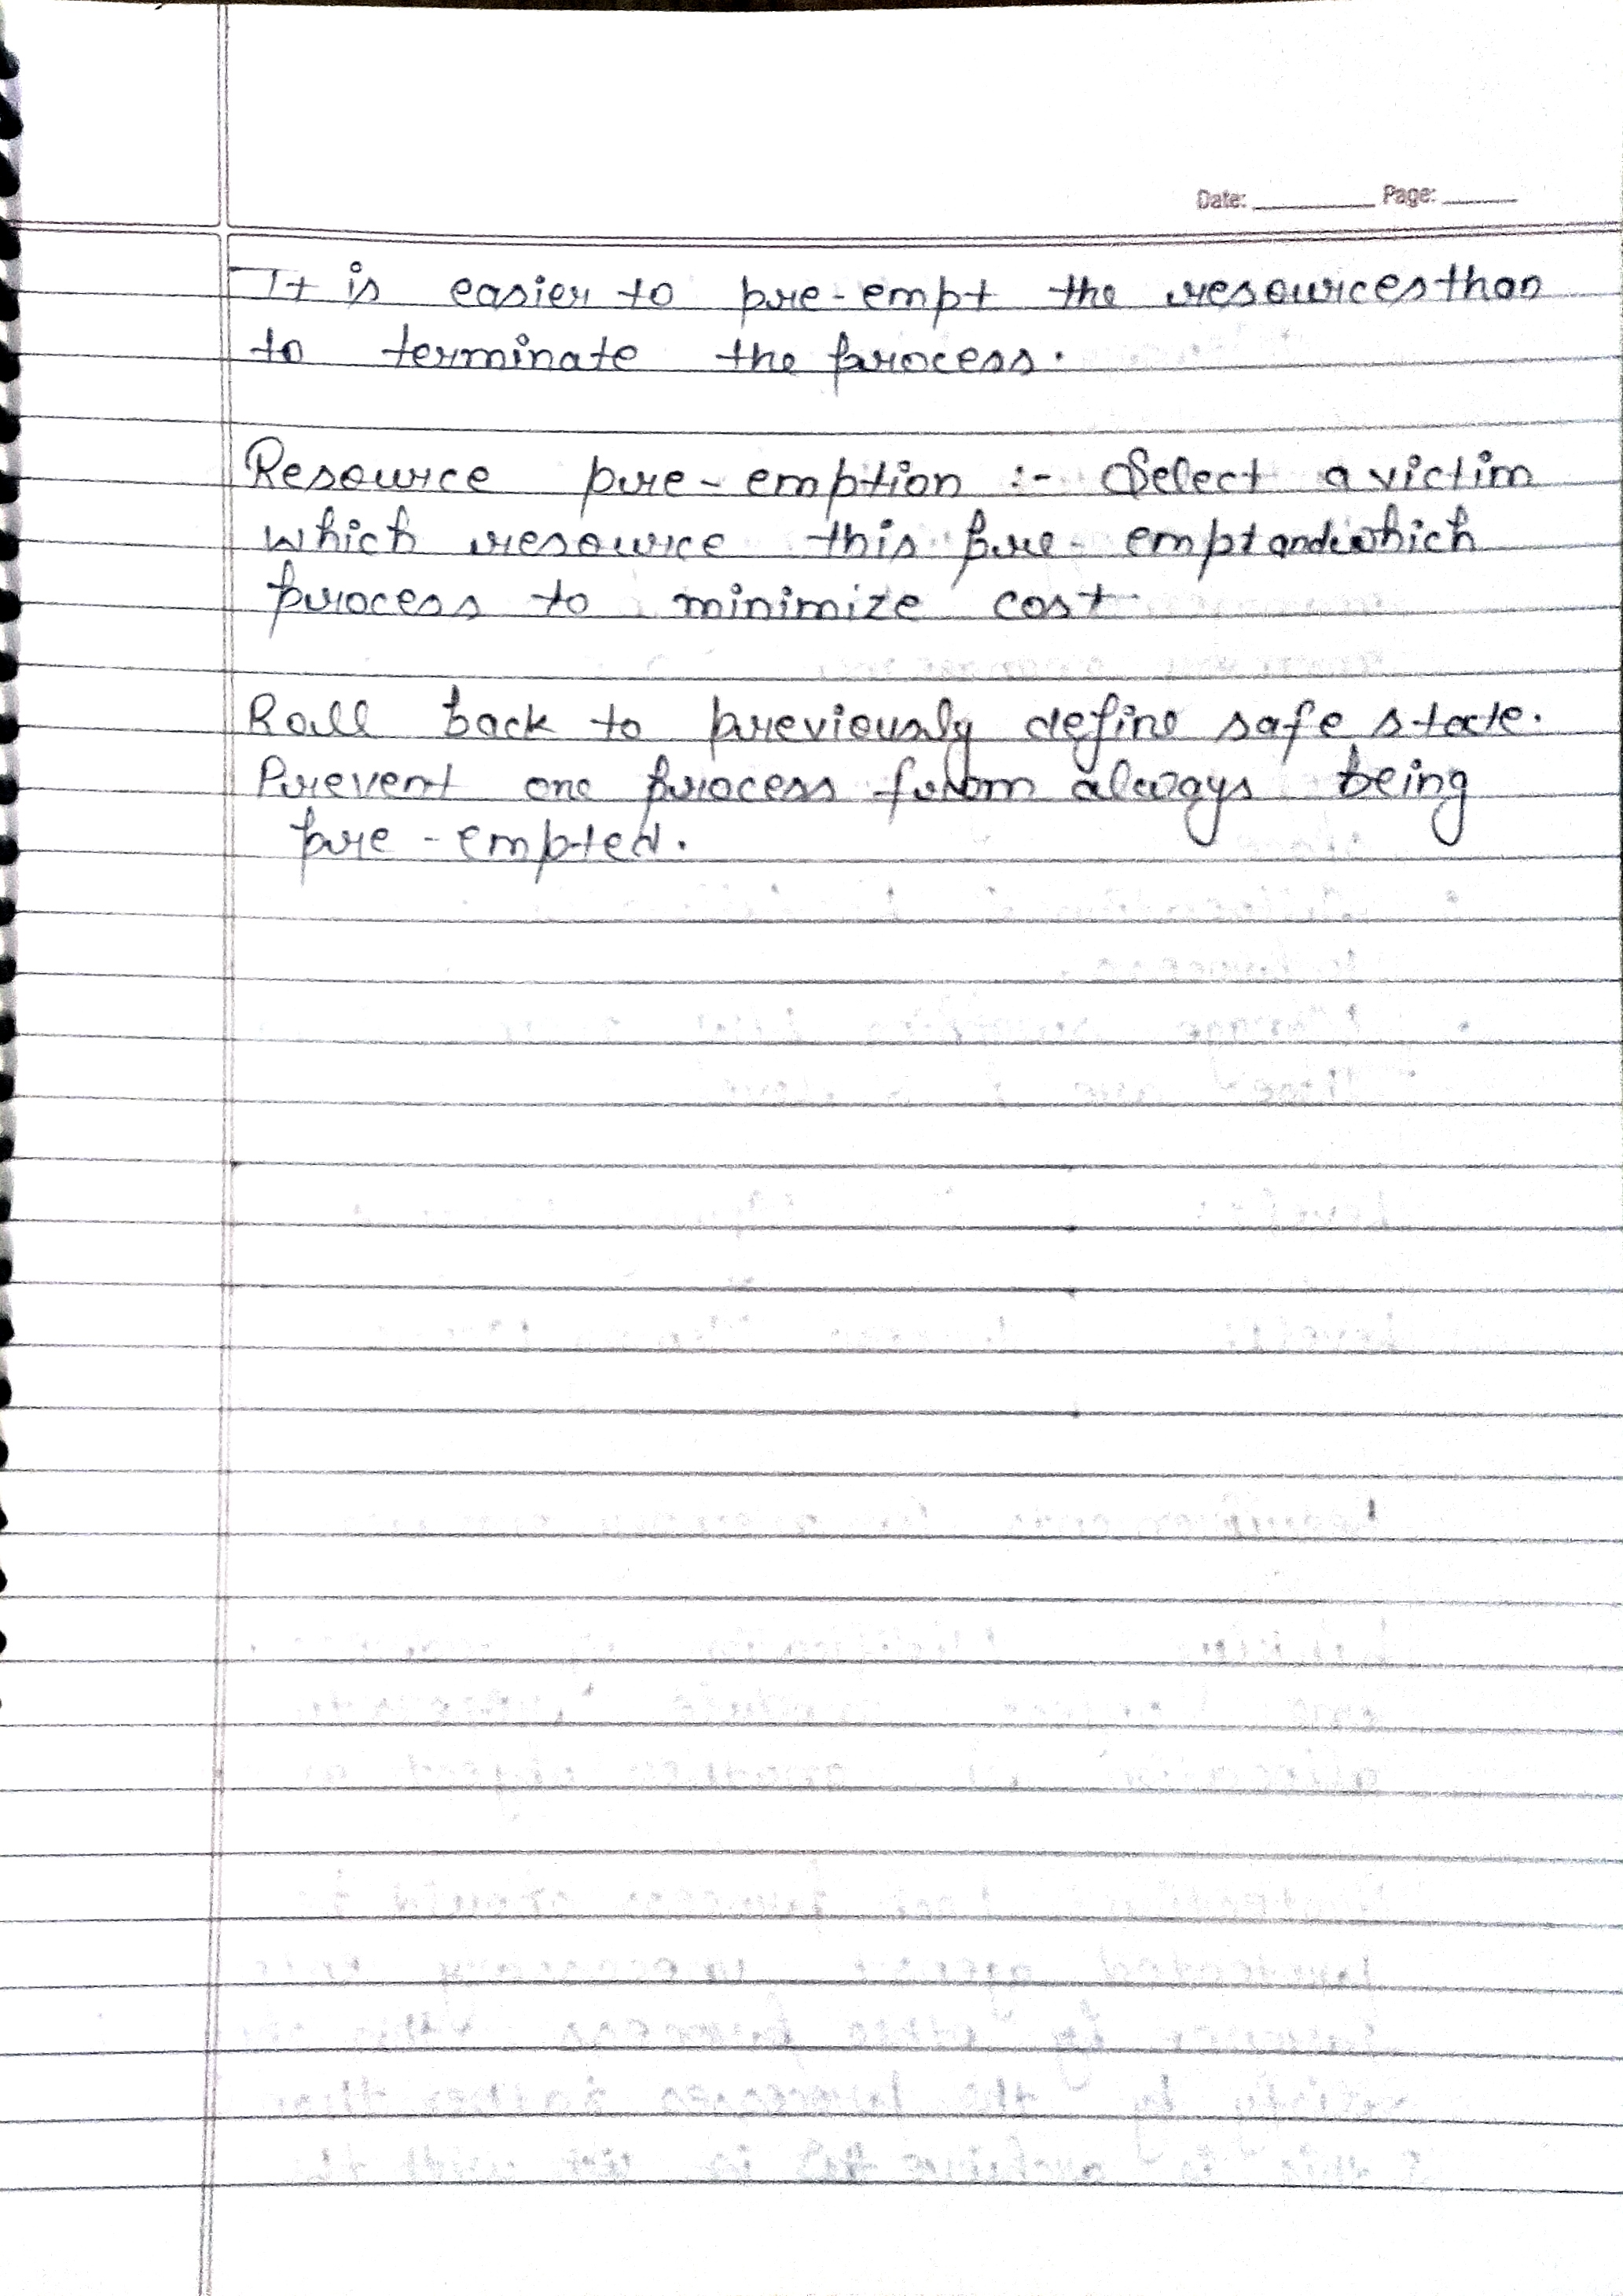 Date: Page:
It is easier to pre-empt the resources than
to terminate the process.
Resource pre-emption :- Select a victim
which resource this pre-empt and which
process to minimize cost.
Roll back to previously define safe state.
Prevent one process from always being
pre-empted.